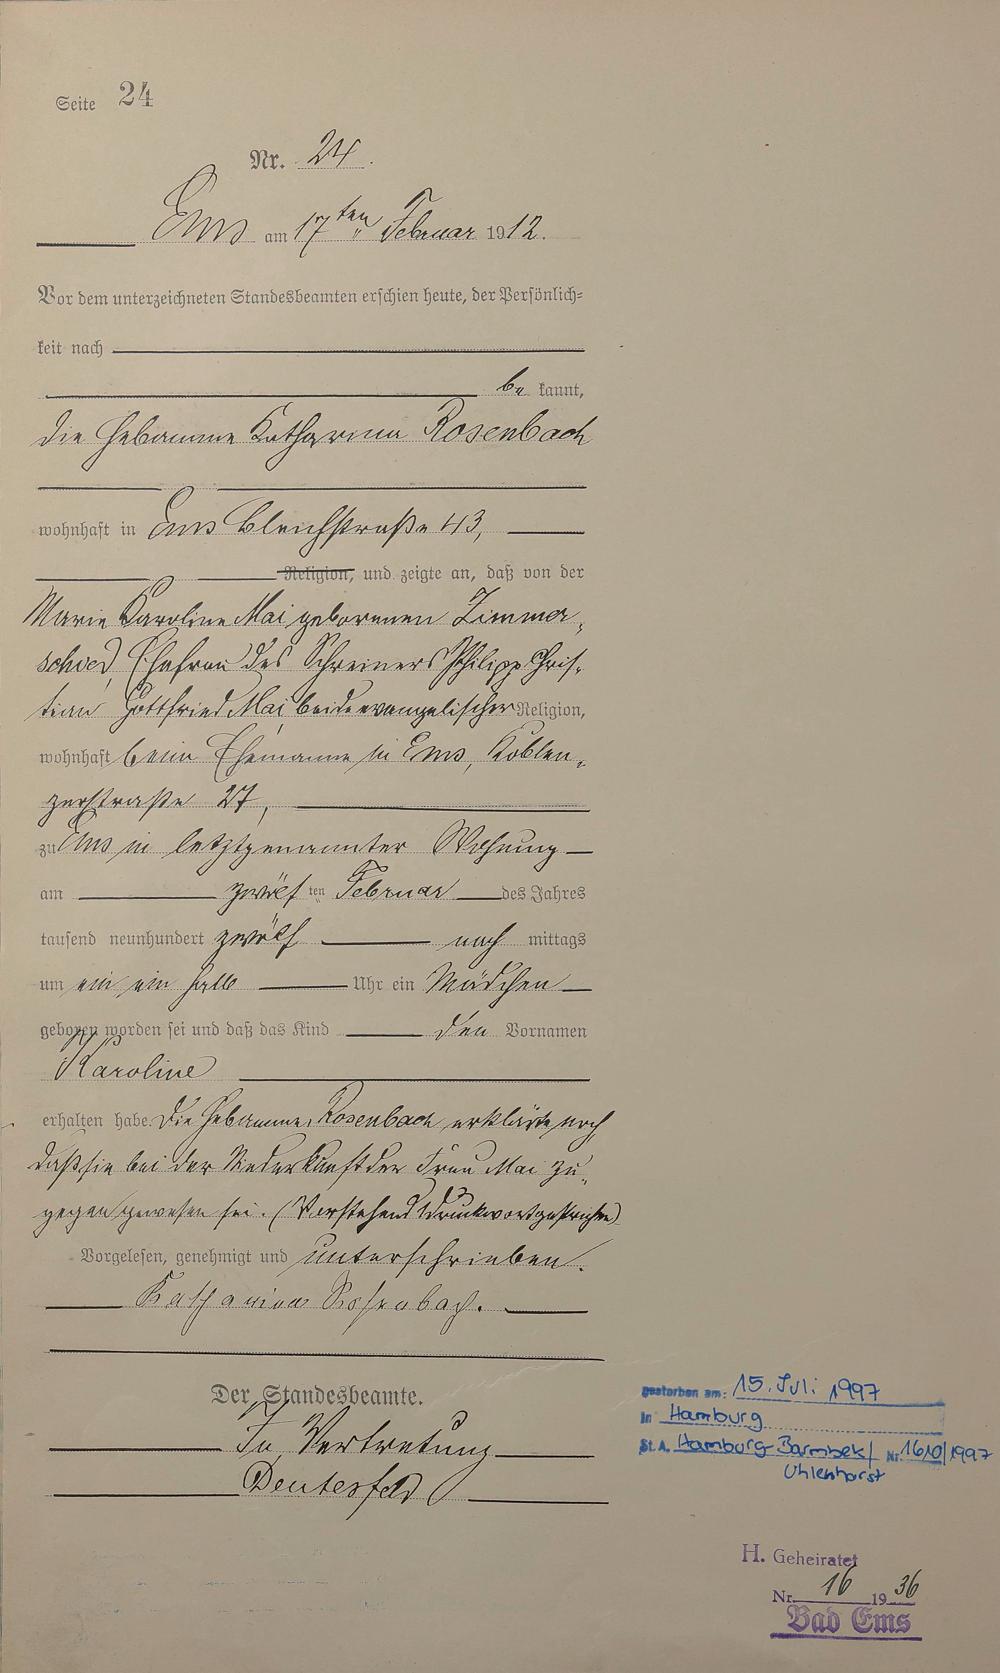 Seite 24
Nr. 24.
Ems am 17ten Februar 1912.
Vor dem unterzeichneten Standesbeamten erschien heute, der Persönlich-
keit nach
be kannt,
die Hebamme Katharina Rosenbach
wohnhaft in Ems Bleichstraße 43,
Religion, und zeigte an, daß von der
Marie Karoline Mai geborenen Zimmer-
schied, Ehefrau des Schreiners Philipp Chris-
tian Gottfried Mai, beide evangelischer Religion,
wohnhaft beim Ehemanne in Ems, Koblen-
zerstraße 27,
zu Ems in letztgenannter Wohnung
am zwölf ten Februar des Jahres
tausend neunhundert zwölf nach mittags
um ein ein halb Uhr ein Mädchen
geboren worden sei und daß das Kind den Vornamen
Karoline
erhalten habe. Die Hebamme Rosenbach erklärte noch
daß sie bei der Niederkunft der Frau Mai zu-
gegen gewesen sei. (Vorstehend 1 Druckwort gestrichen)
Vorgelesen, genehmigt und unterschrieben.
Katharina Rosenbach.
Der Standesbeamte.
In Vertretung
gestorben am: 15. Juli 1997
in Hamburg
St. A. Hamburg-Barmbek/ Nr. 1610/1997
Uhlenhorst
H. Geheiratet
Nr. 16 1936
Bad Ems